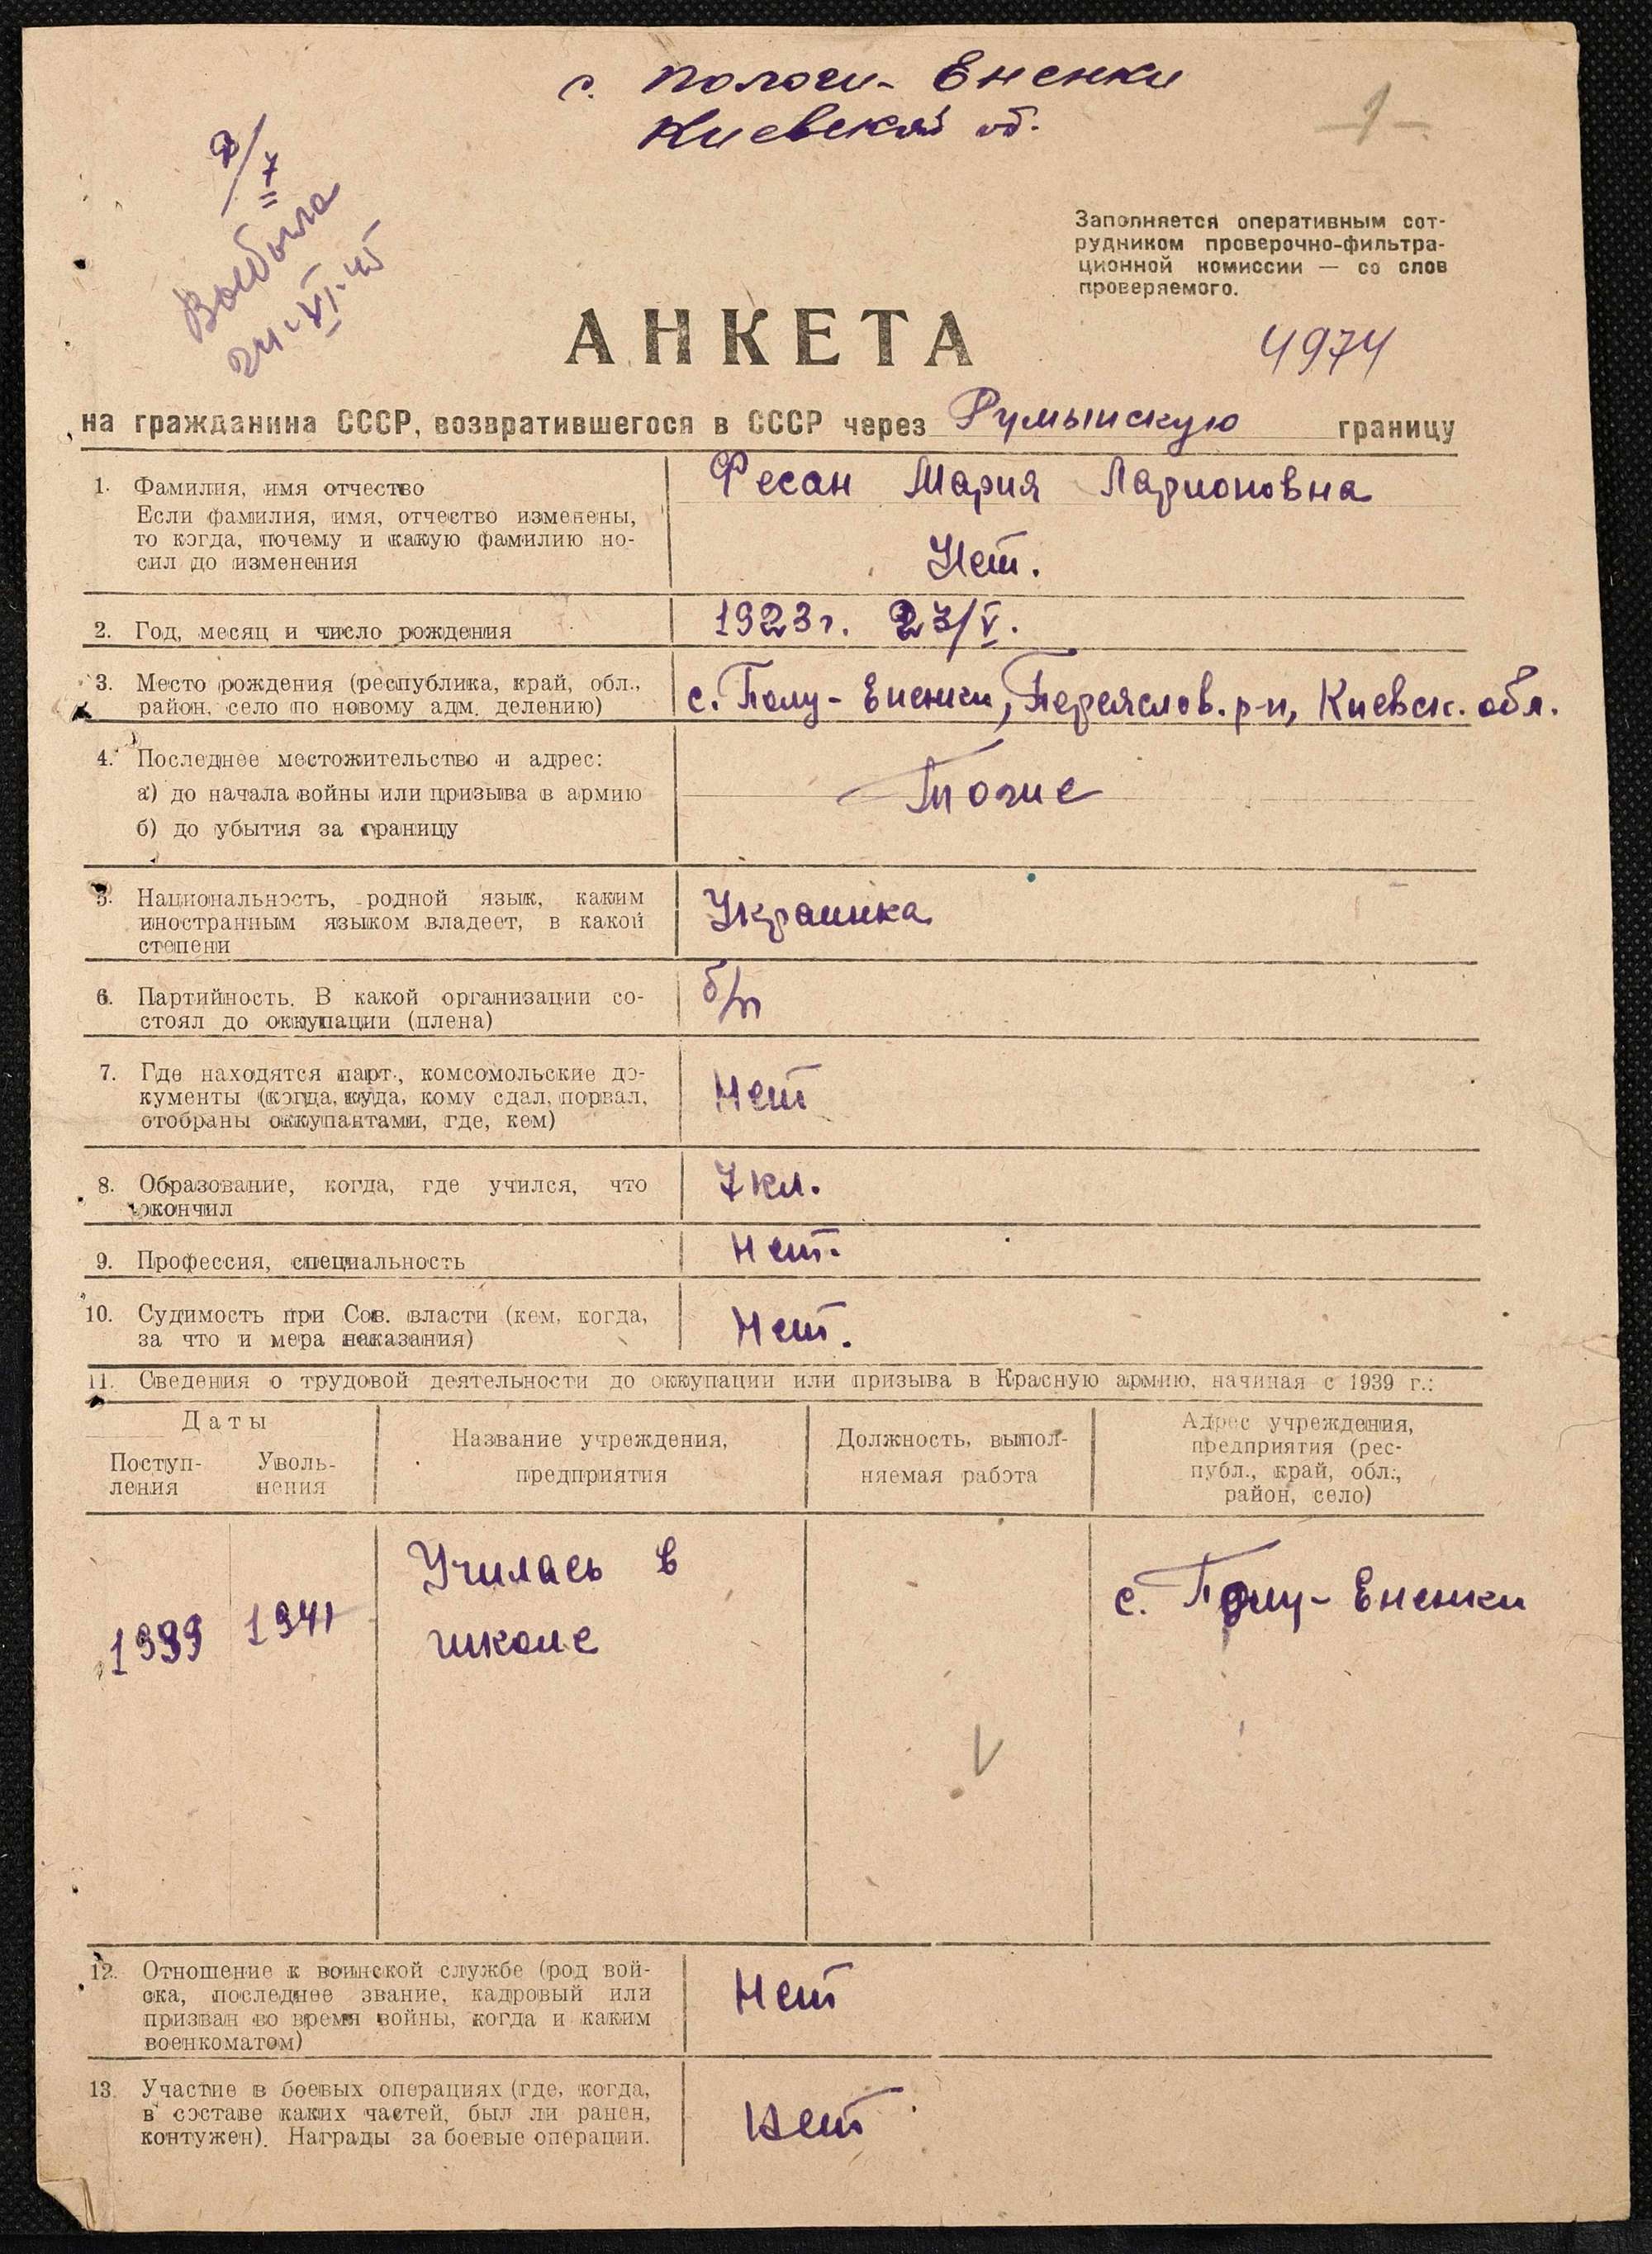 с. Пологи-Ененки
Киевской об.
-1-
Выбыла
24.VI.45
Заполняется оперативным сот-
рудником проверочно-фильтра-
ционной комиссии — со слов
проверяемого.
АНКЕТА
4974
на гражданина СССР, возвратившегося в СССР через Румынскую границу
1. Фамилия, имя отчество
Если фамилия, имя, отчество изменены,
то когда, почему и какую фамилию но-
сил до изменения
Фесан Мария Ларионовна
Нет.
2. Год, месяц и число рождения
1923г. 27/V.
3. Место рождения (республика, край, обл.,
район, село по новому адм. делению)
с. Полу-Ененки, Переяслов. р-н, Киевск. обл.
4. Последнее местожительство и адрес:
а) до начала войны или призыва в армию
б) до убытия за границу
Тоже
5. Национальность, родной язык, каким
иностранным языком владеет, в какой
степени
Украинка
6. Партийность. В какой организации со-
стоял до оккупации (плена)
б/п
7. Где находятся парт., комсомольские до-
кументы (когда, куда, кому сдал, порвал,
отобраны оккупантами, где, кем)
Нет
8. Образование, когда, где учился, что
окончил
7 кл.
9. Профессия, специальность
Нет.
10. Судимость при Сов. власти (кем, когда,
за что и мера наказания)
Нет.
11. Сведения о трудовой деятельности до оккупации или призыва в Красную армию, начиная с 1939 г.:
Даты
Поступ-
ления
Уволь-
нения
Название учреждения,
предприятия
Должность, выпол-
няемая работа
Адрес учреждения,
предприятия (рес-
публ., край, обл.,
район, село)
1939 1941
Училась в
школе
с. Полу-Ененки
12. Отношение к воинской службе (род вой-
ска, последнее звание, кадровый или
призван во время войны, когда и каким
военкоматом)
Нет
13. Участие в боевых операциях (где, когда,
в составе каких частей, был ли ранен,
контужен). Награды за боевые операции.
Нет